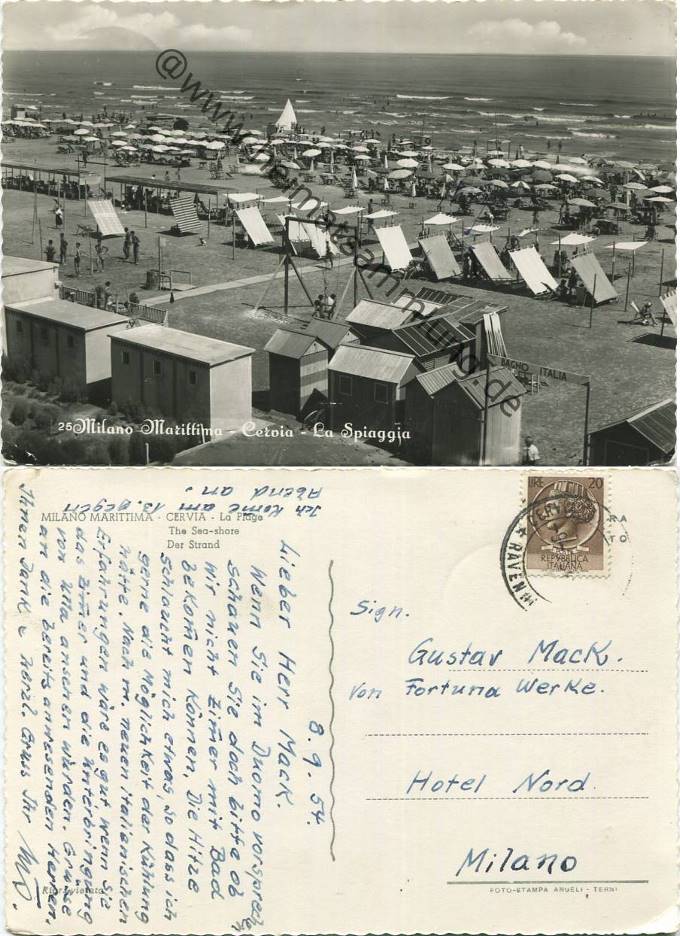 @www.heimatsammlung.de
BAGNO ITALIA
25 Milano Marittima - Cervia - La Spiaggia
MILANO MARITTIMA - CERVIA - La Plage
The Sea-shore
Der Strand
8.9.54.
Lieber Herr Mack.
Wenn Sie im Duomo vorsprechen
schauen Sie doch bitte ob
wir nicht Zimer mit Bad
bekomen können, Die Hitze
schlaucht mich etwas, so dass ich
gerne die Möglichkeit der Kühlung
hätte. Nach m. neuen italienischen
Erfahrungen wäre es gut wenn Sie
das Zimer und die Unterbringung
von Uta ansehen würden. Grüsse
an die bereits anwesenden Herren.
Ihnen Danke herzl. Gruss Ihr
Ich kome am 13. gegen
Abend an.
LIRE 20
REPVBBLICA
ITALIANA
RAVENNA
Sign.
Gustav Mack.
von Fortuna Werke.
Hotel Nord.
Milano
FOTO-STAMPA ANGELI - TERNI
Riar. vietata